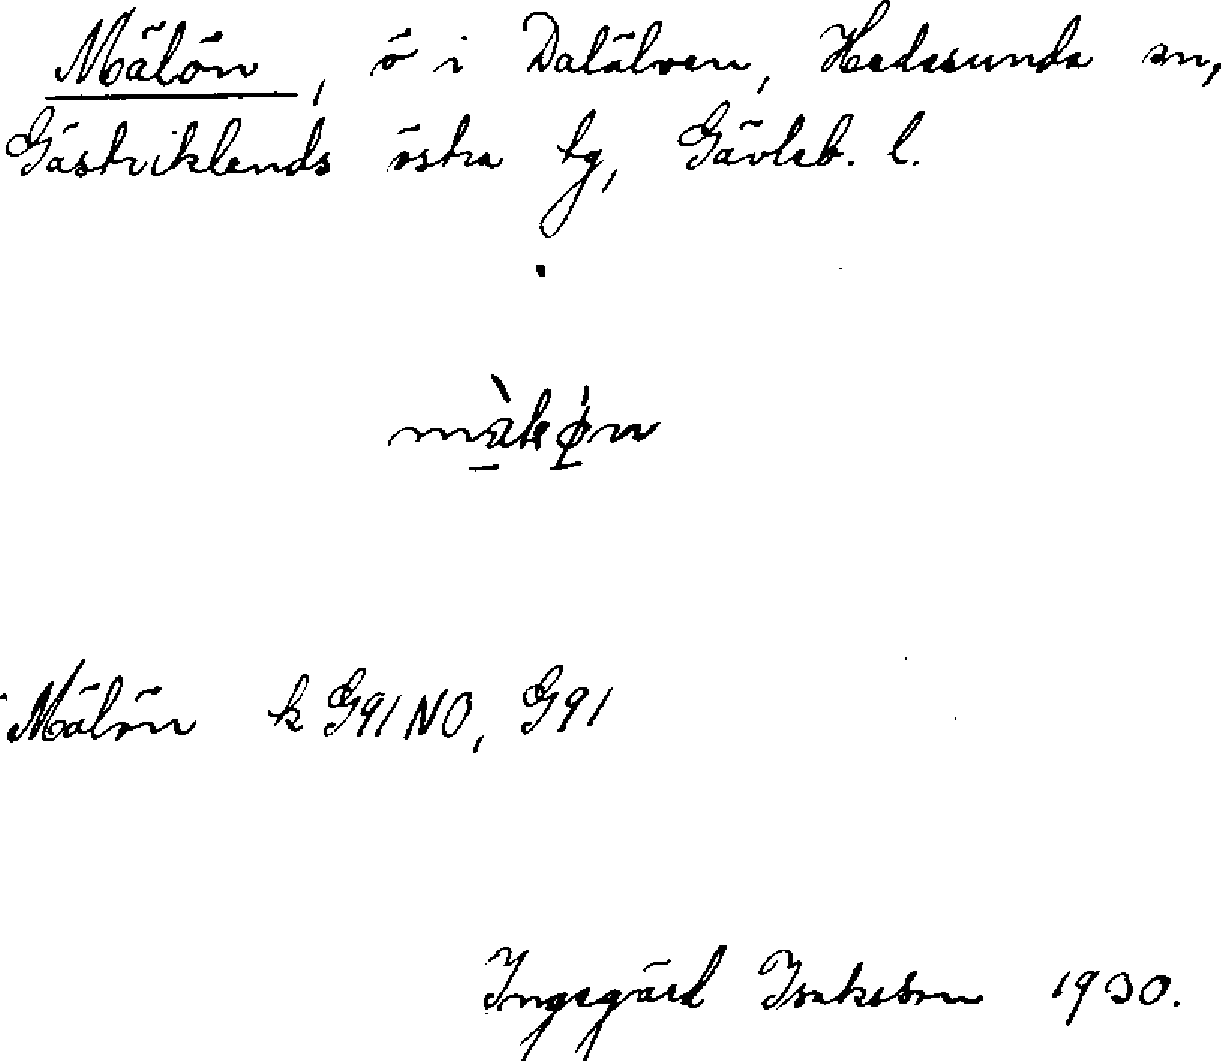 Mälön, ö i Dalälven, Hedesunda sn,
Gästriklands östra tg, Gävleb. l.
Mälön k G91NO, G91
Ingegärd Isaksson 1930.